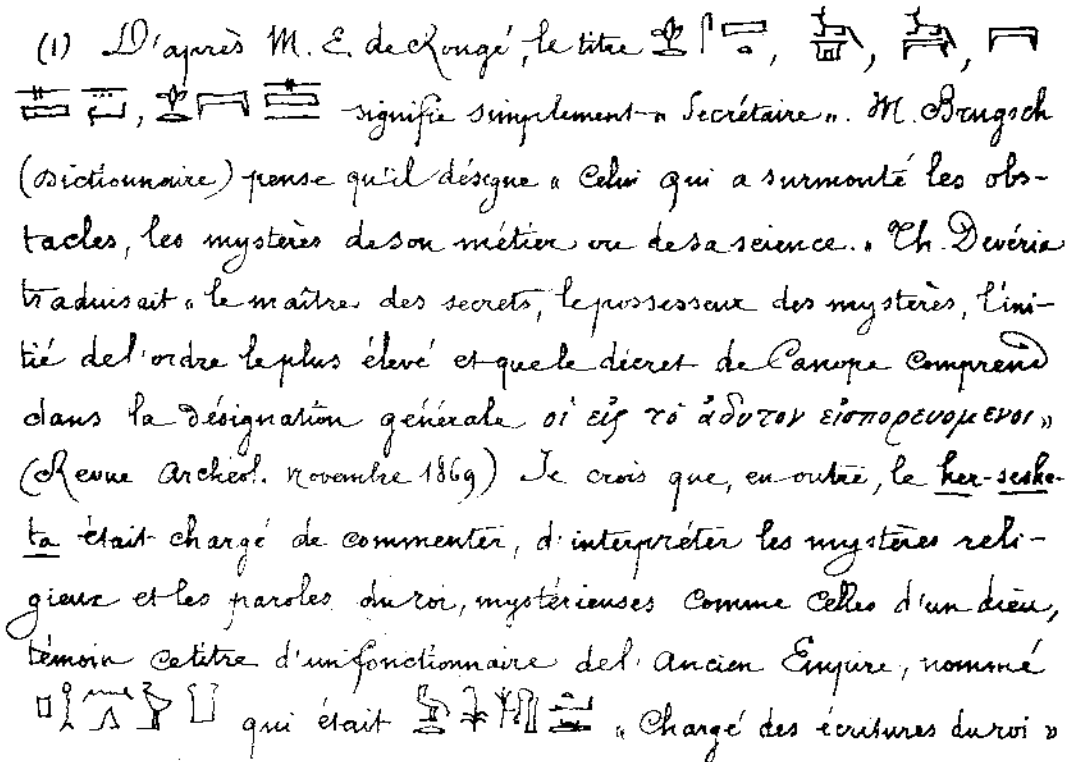 (1) D'après M. E. de Rougé, le titre
signifie simplement « Secrétaire ». M. Brugsch
(Dictionnaire) pense qu'il désigne « Celui qui a surmonté les obs-
tacles, les mystères de son métier ou de sa science. » Th. Devéria
traduisait « le maître des secrets, le possesseur des mystères, l'ini-
tié de l'ordre le plus élevé et que le décret de Canope comprend
dans la désignation générale οἱ εἰς τὸ ἄδυτον εἰσπορευομενοι »
(Revue Archéol. novembre 1869) Je crois que, en outre, le her-seshe-
ta était chargé de commenter, d'interpréter les mystères reli-
gieux et les paroles du roi, mystérieuses comme celles d'un dieu,
témoin ce titre d'un fonctionnaire de l'Ancien Empire, nommé
qui était « Chargé des écritures du roi »